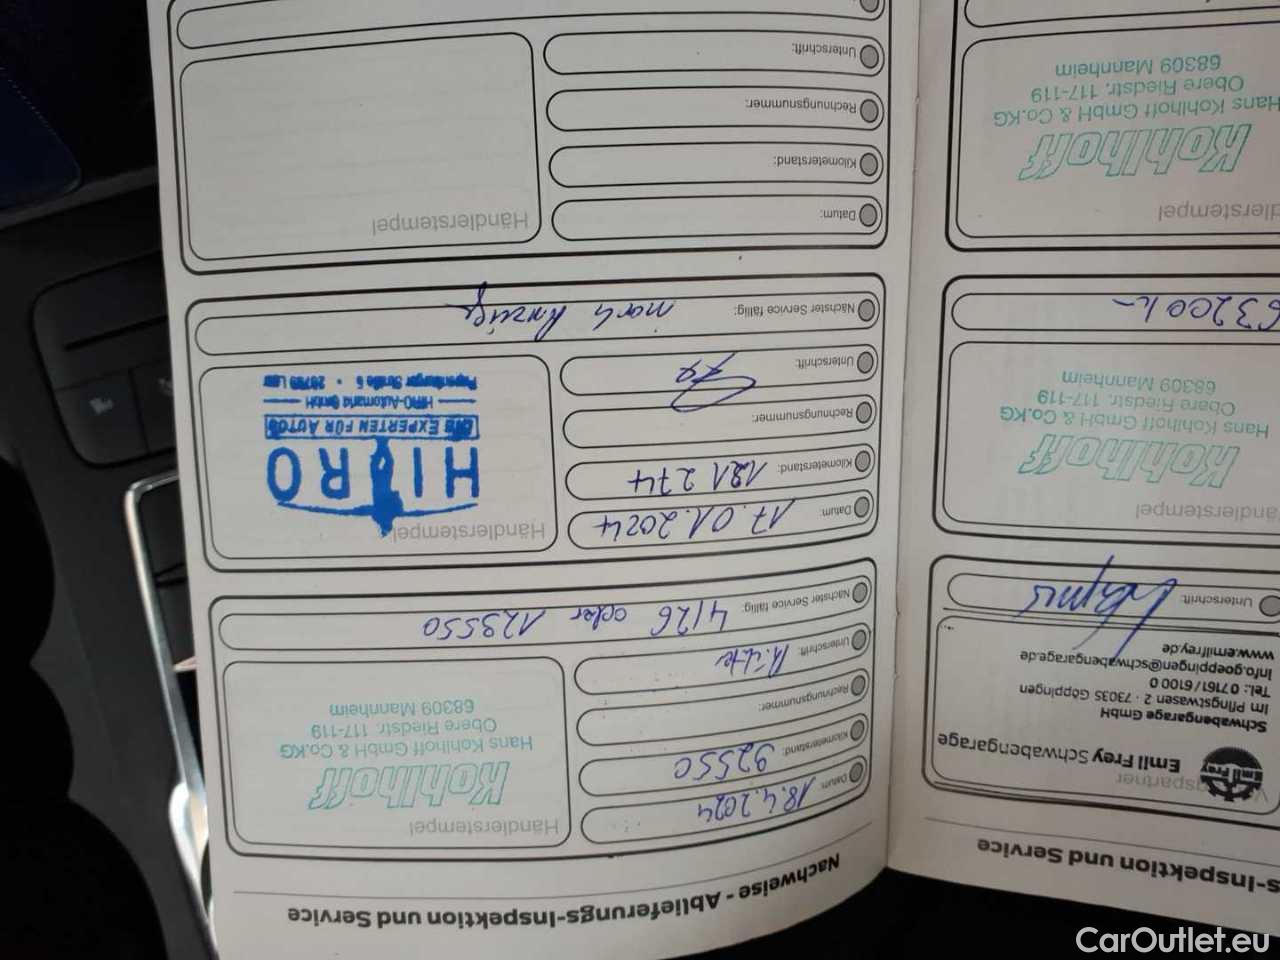 Nachweise - Ablieferungs-Inspektion und Service
Datum: 18.4.2024
Kilometerstand: 92550
Rechnungsnummer:
Unterschrift:
Nächster Service fällig: 4/26 oder 123550
Händlerstempel
Kohlhoff
Hans Kohlhoff GmbH & Co.KG
Obere Riedstr. 117-119
68309 Mannheim
Datum: 17.01.2024
Kilometerstand: 121 274
Rechnungsnummer:
Unterschrift:
Nächster Service fällig: nach Anzeige
Händlerstempel
HIRO
DIE EXPERTEN FÜR AUTOS
HIRO-Automarkt GmbH
Papenburger Straße 5 • 26789 Leer
Datum:
Kilometerstand:
Rechnungsnummer:
Unterschrift:
Händlerstempel
s-Inspektion und Service
gspartner
Emil Frey
Emil Frey Schwabengarage
Schwabengarage GmbH
Im Pfingstwasen 2 · 73035 Göppingen
Tel.: 07161/6100 0
info.goeppingen@schwabengarage.de
www.emilfrey.de
Unterschrift:
Händlerstempel
Kohlhoff
Hans Kohlhoff GmbH & Co.KG
Obere Riedstr. 117-119
68309 Mannheim
63200
dlerstempel
Kohlhoff
Hans Kohlhoff GmbH & Co.KG
Obere Riedstr. 117-119
68309 Mannheim
CarOutlet.eu